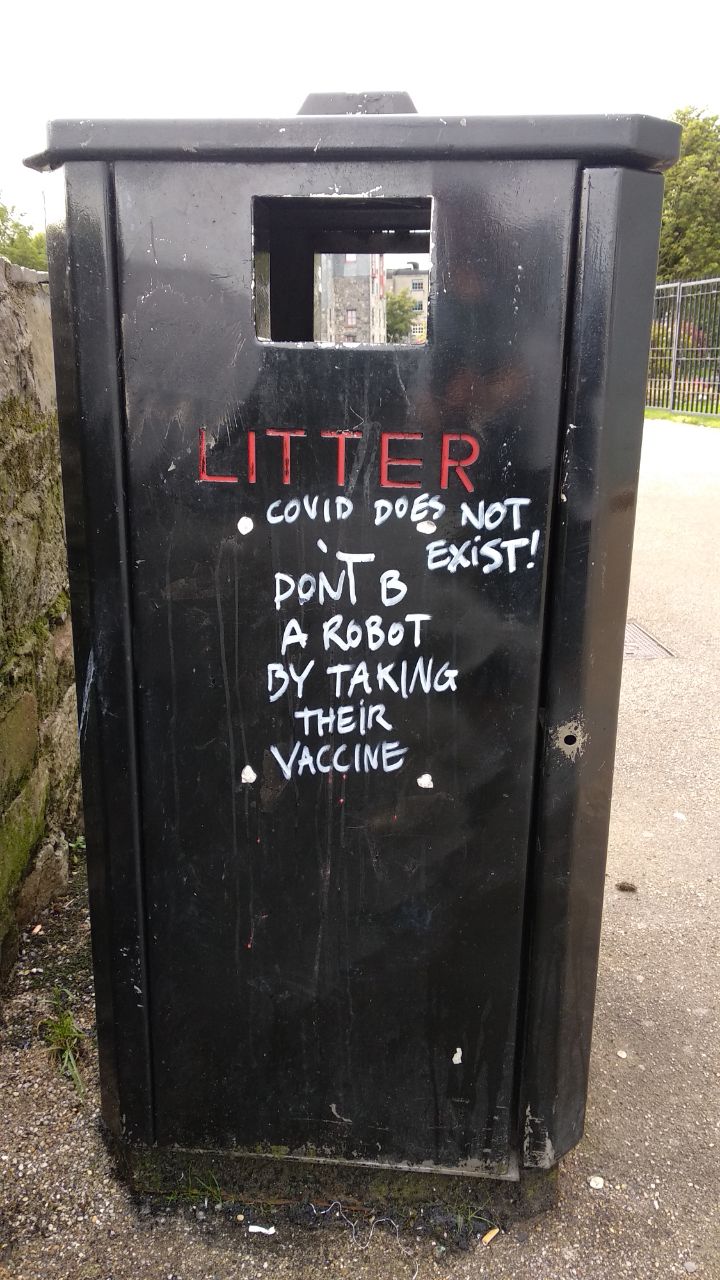 LITTER
COVID DOES NOT
EXiST!
DON'T B
A ROBOT
BY TAKING
THEiR
VACCINE